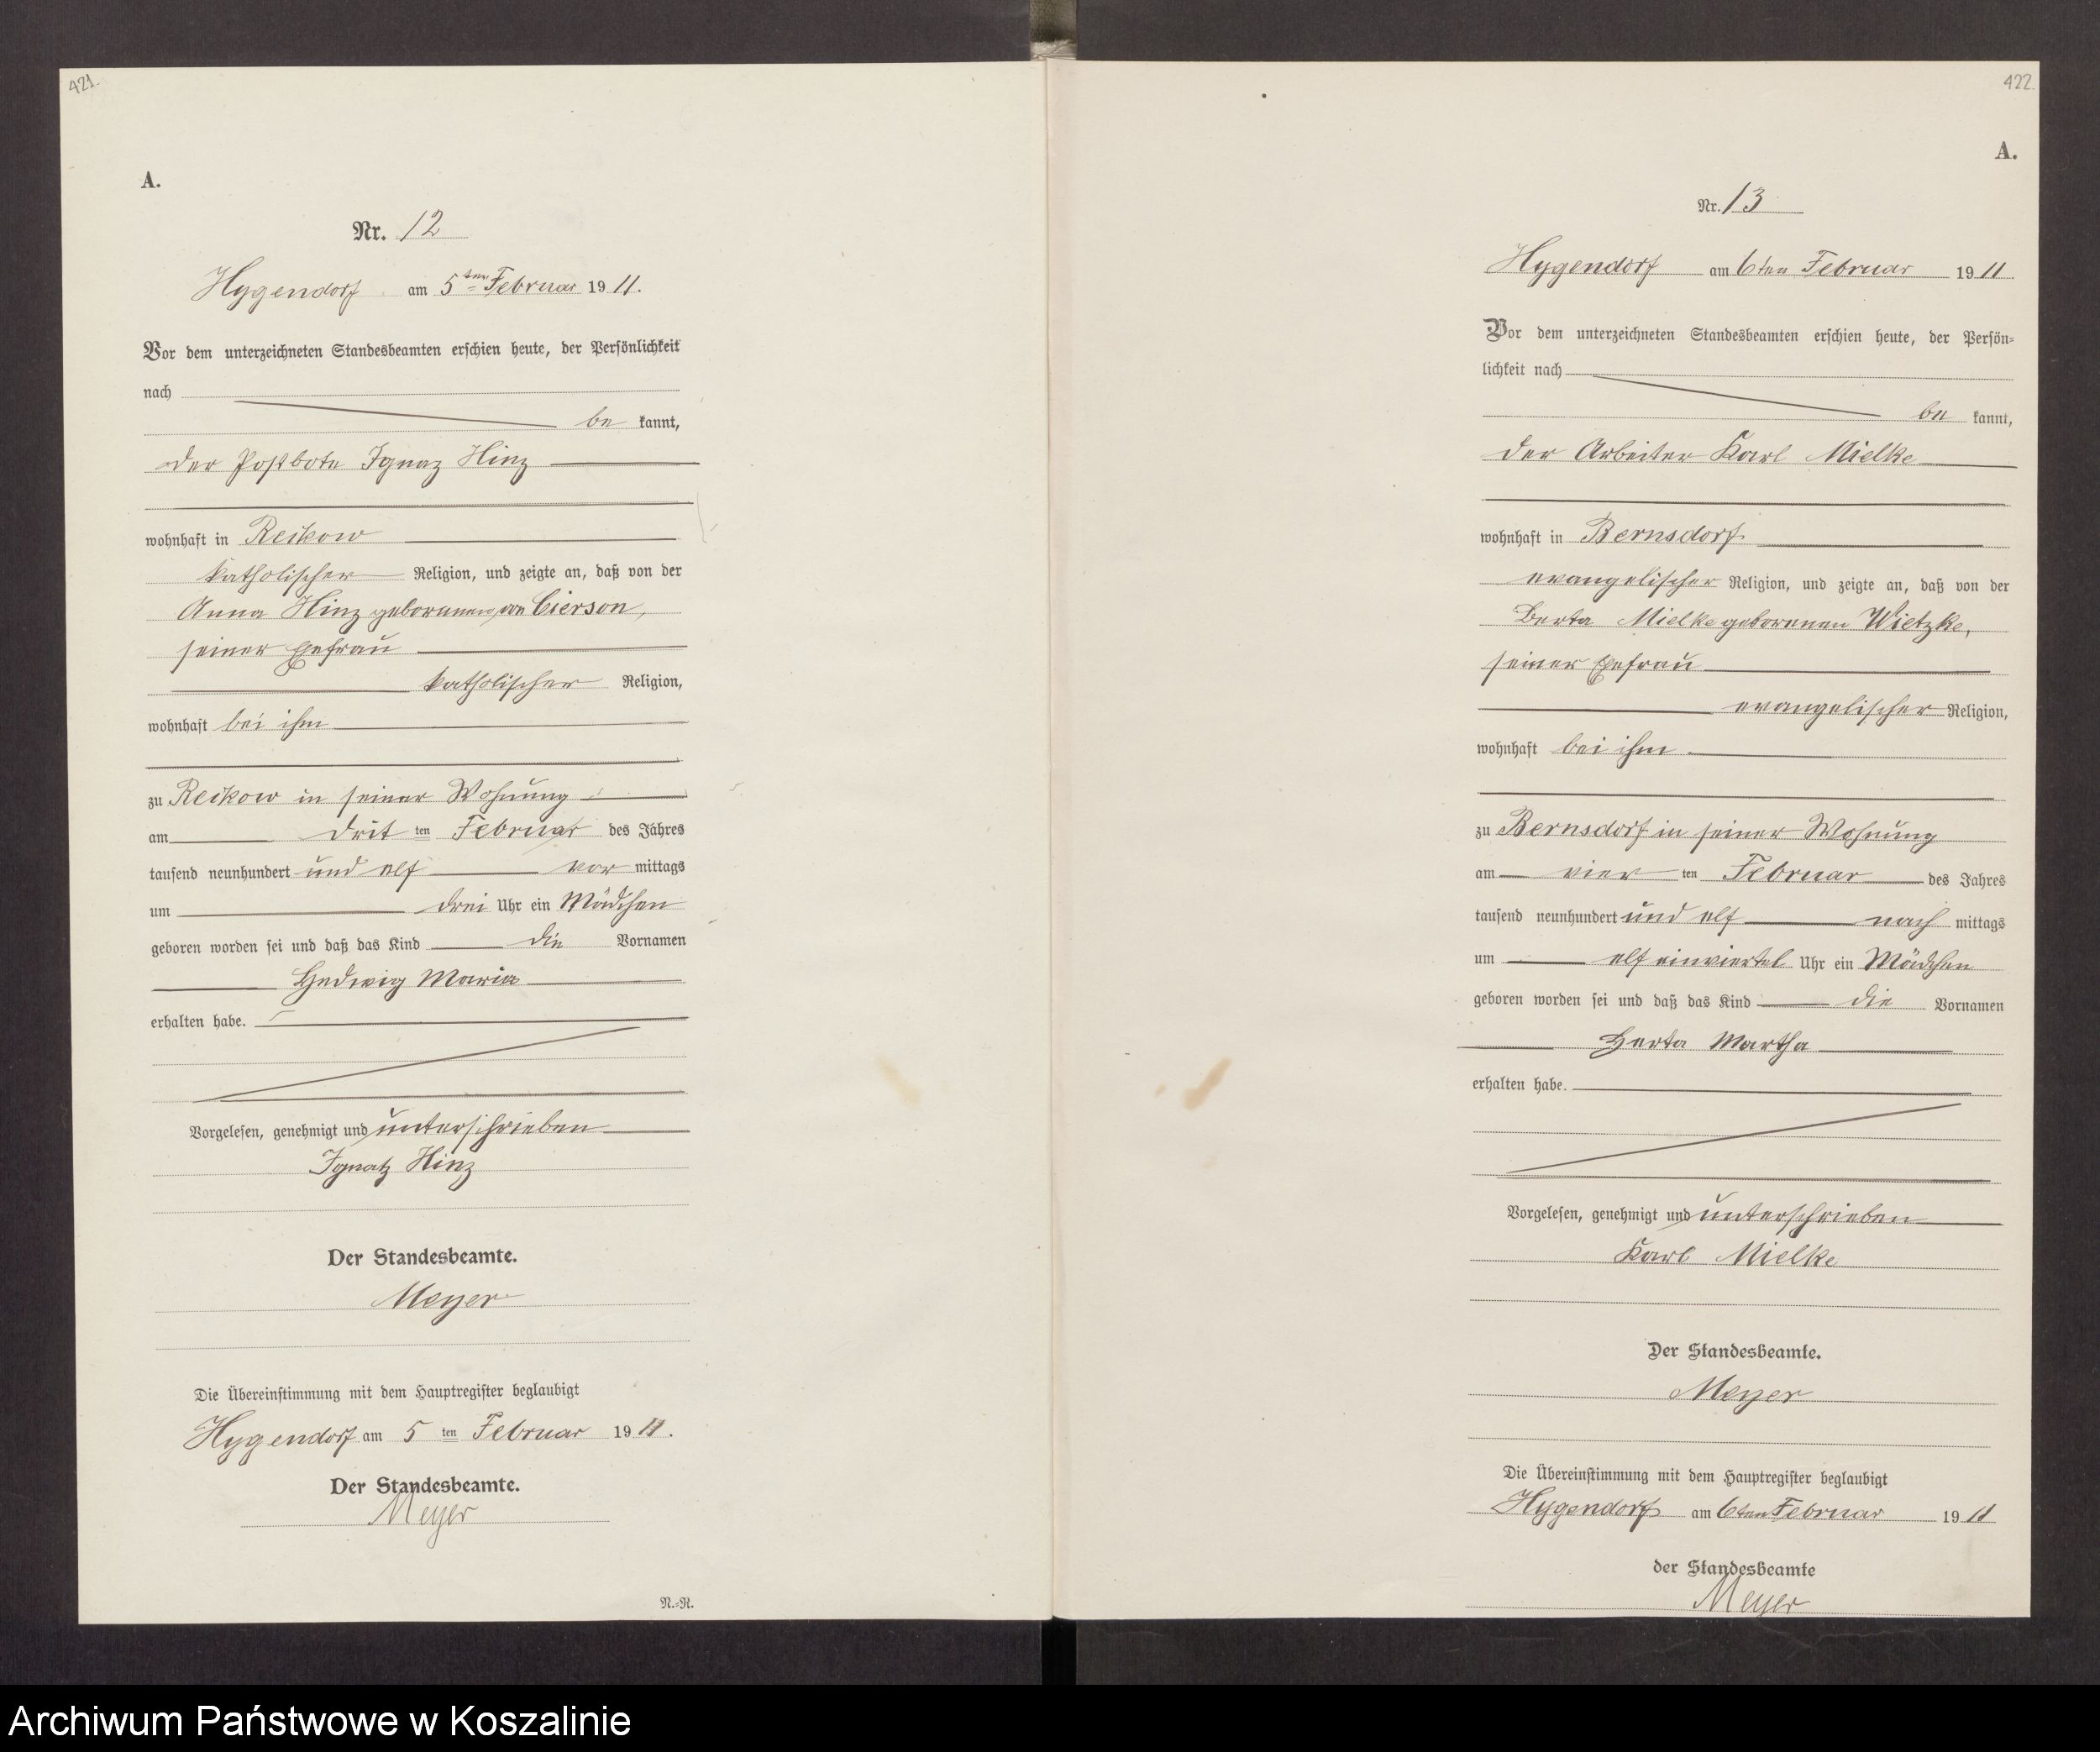 421.
A.
Nr. 12
Hygendorf am 5ten Februar 1911.
Vor dem unterzeichneten Standesbeamten erschien heute, der Persönlichkeit
nach
be kannt,
der Postbote Ignaz Hinz
wohnhaft in Reckow
katholischer Religion, und zeigte an, daß von der
Anna Hinz geborenen von Cierson,
seiner Ehefrau
katholischer Religion,
wohnhaft bei ihm
zu Reckow in seiner Wohnung
am drit ten Februar des Jahres
tausend neunhundert und elf vor mittags
um drei Uhr ein Mädchen
geboren worden sei und daß das Kind die Vornamen
Hedwig Maria
erhalten habe.
Vorgelesen, genehmigt und unterschrieben
Ignatz Hinz
Der Standesbeamte.
Meyer
Die Übereinstimmung mit dem Hauptregister beglaubigt
Hygendorf am 5 ten Februar 1911.
Der Standesbeamte.
Meyer
N.-N.
422.
A.
Nr. 13
Hygendorf am 6ten Februar 1911
Vor dem unterzeichneten Standesbeamten erschien heute, der Persön-
lichkeit nach
be kannt,
der Arbeiter Karl Mielke
wohnhaft in Bernsdorf
evangelischer Religion, und zeigte an, daß von der
Berta Mielke geborenen Wietzke,
seiner Ehefrau
evangelischer Religion,
wohnhaft bei ihm
zu Bernsdorf in seiner Wohnung
am vier ten Februar des Jahres
tausend neunhundert und elf nach mittags
um elf einviertel Uhr ein Mädchen
geboren worden sei und daß das Kind die Vornamen
Herta Martha
erhalten habe.
Vorgelesen, genehmigt und unterschrieben
Karl Mielke
Der Standesbeamte.
Meyer
Die Übereinstimmung mit dem Hauptregister beglaubigt
Hygendorf am 6ten Februar 1911
der Standesbeamte
Meyer
Archiwum Państwowe w Koszalinie